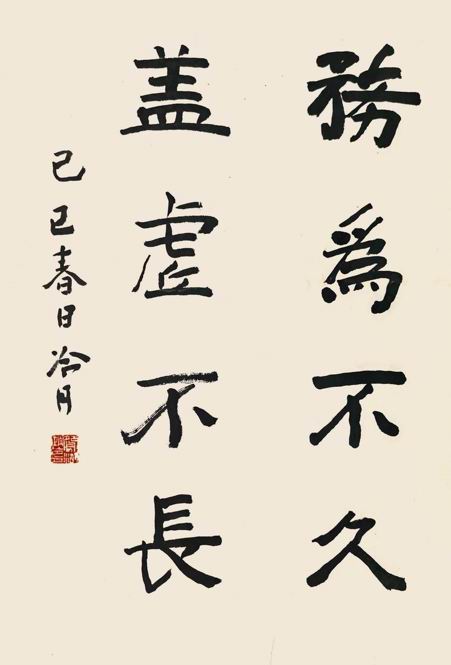 務爲不久
盖虛不長
己巳春日冷月